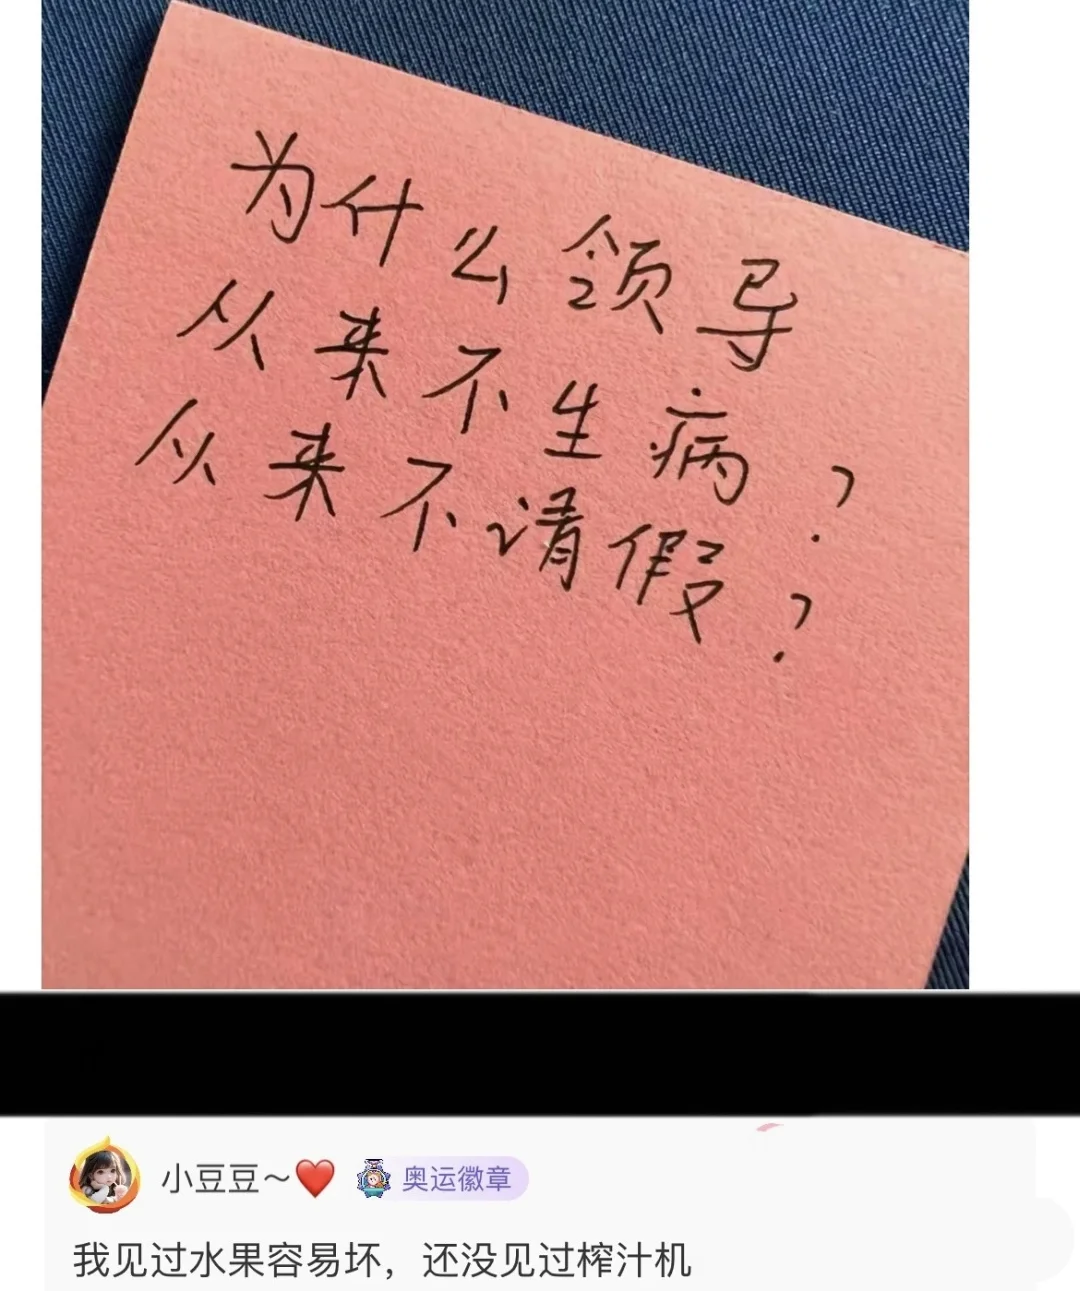 为什么领导
从来不生病?
从来不请假?
小豆豆～❤️ 奥运徽章
我见过水果容易坏，还没见过榨汁机